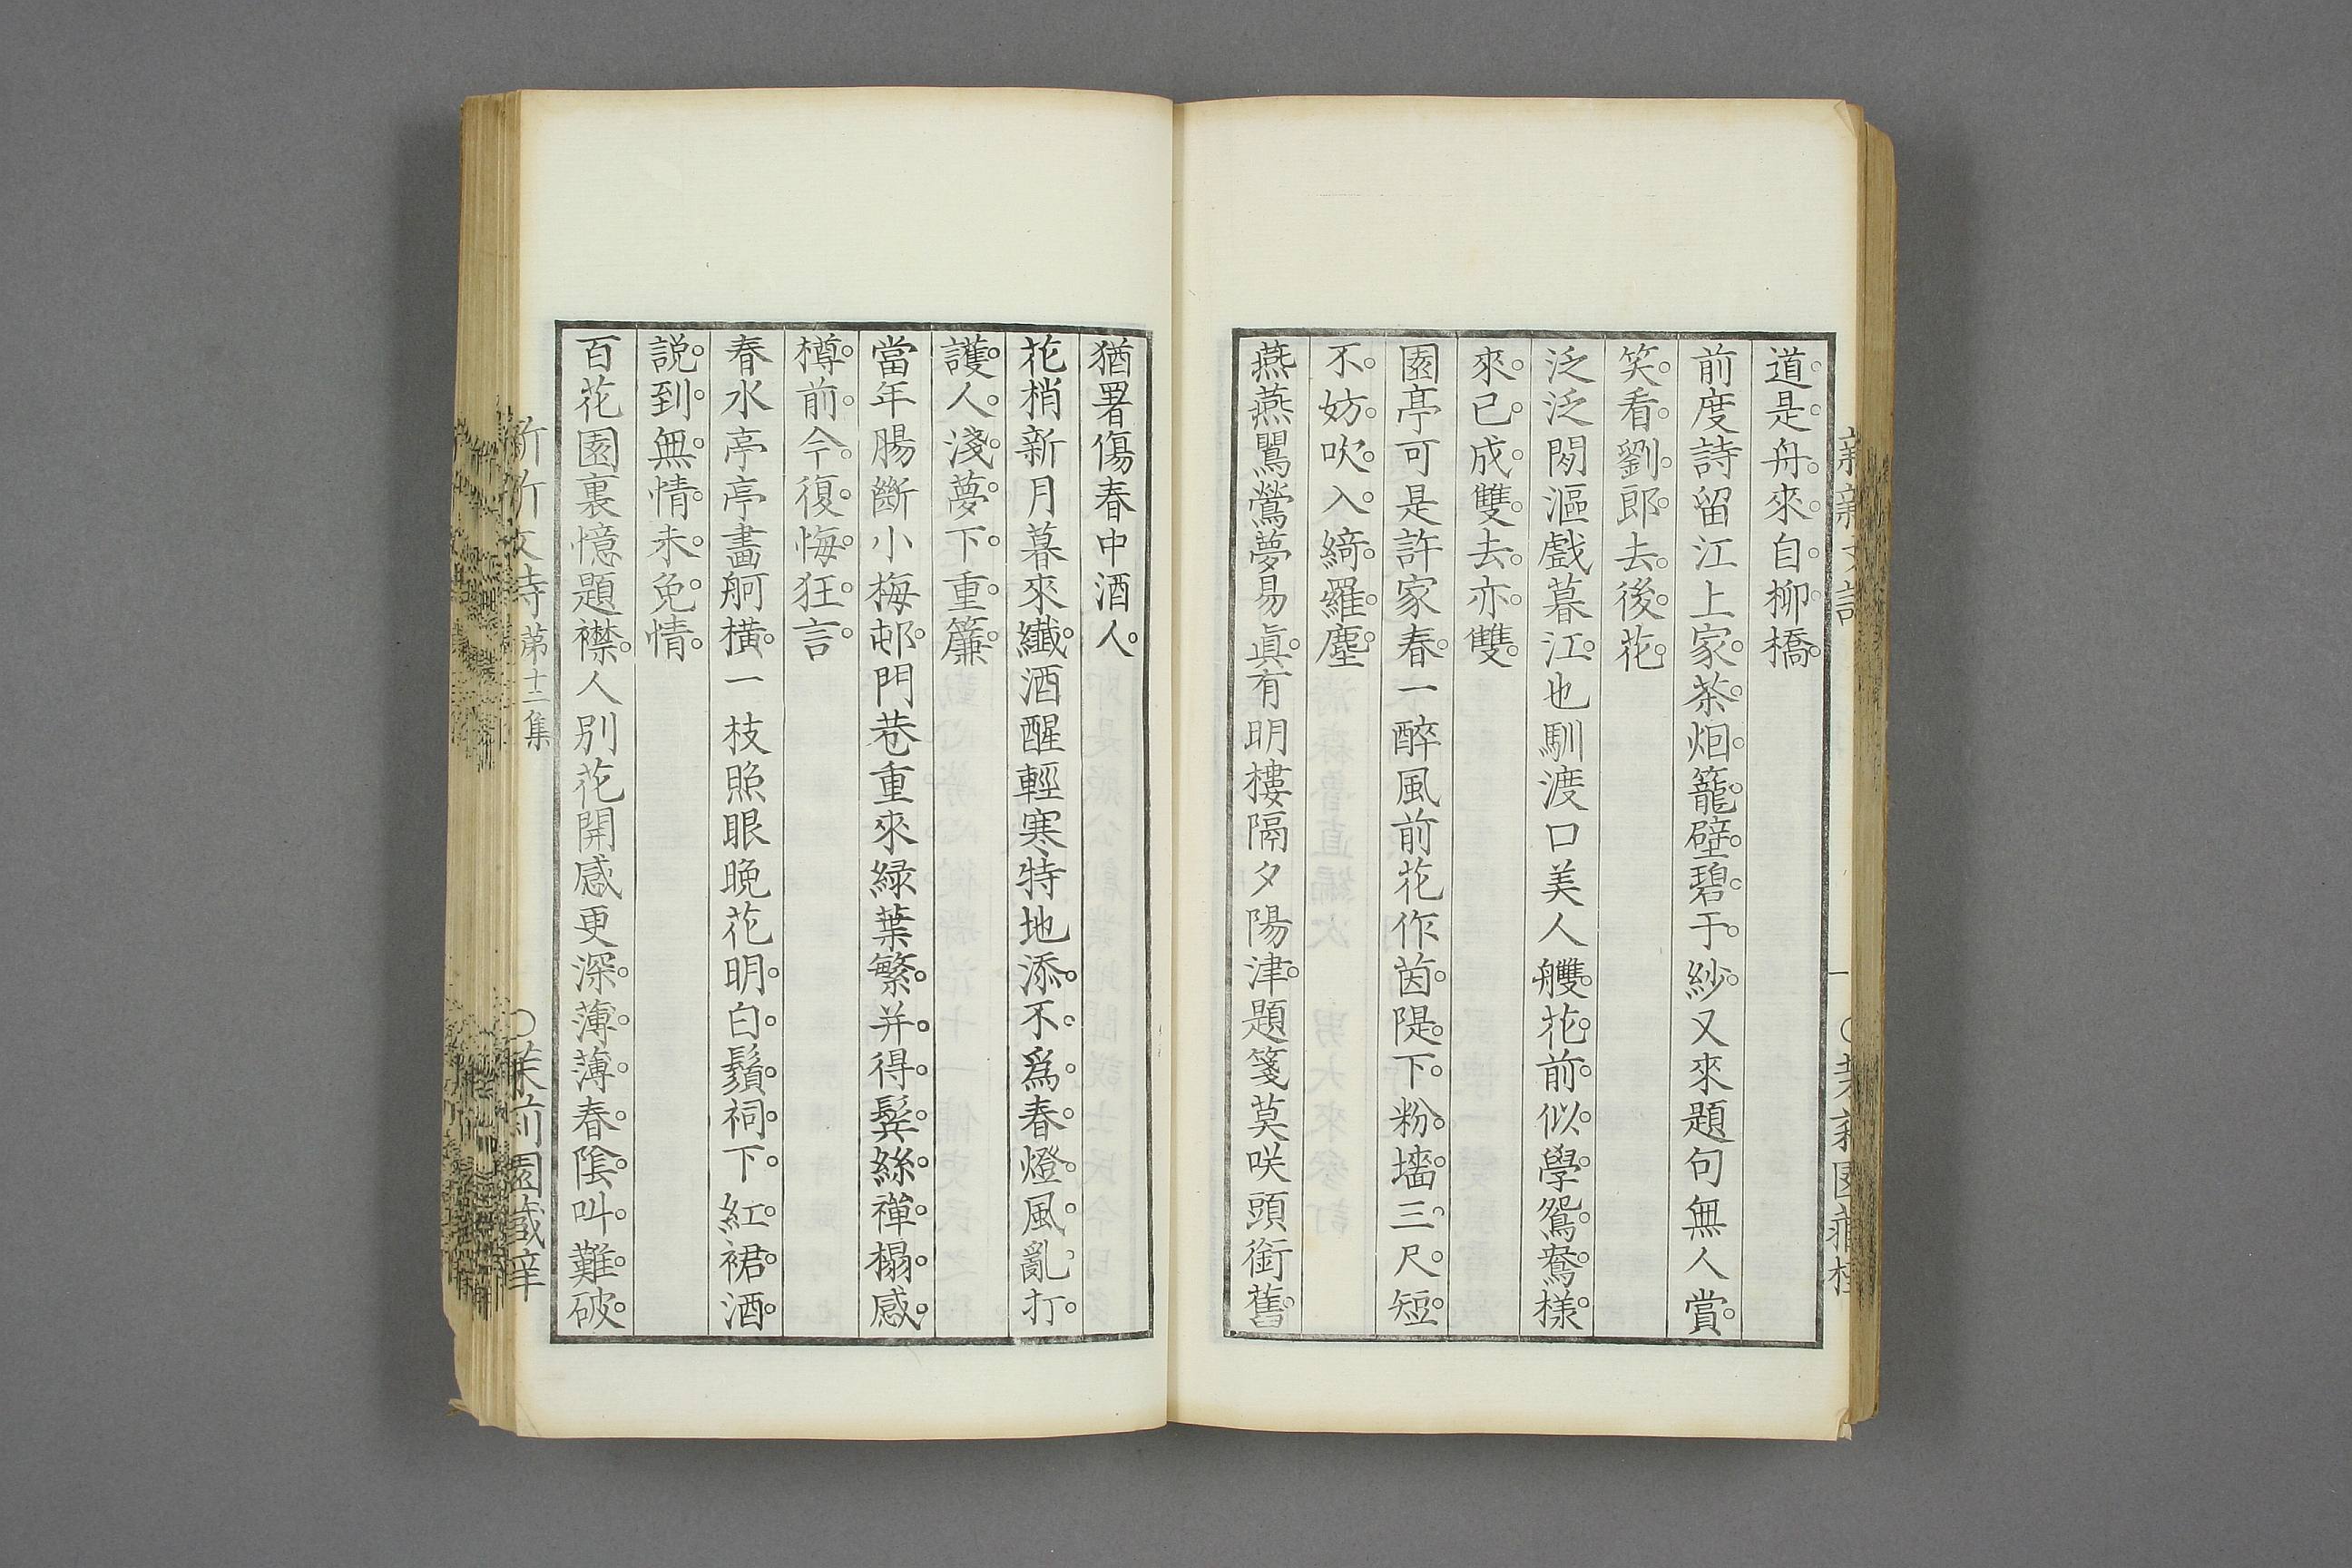 道是舟來自柳橋
前度詩留江上家茶烟籠壁碧于紗又來題句無人賞
笑看劉郎去後花
泛泛閑漚戲暮江也馴渡口美人艭花前似學鴛鴦樣
來已成雙去亦雙
園亭可是許家春一醉風前花作茵隄下粉墻三尺短
不妨吹入綺羅塵
燕燕鸎鶯夢易眞有明樓隔夕陽津題箋莫咲頭銜舊
猶署傷春中酒人
花梢新月暮來纖酒醒輕寒特地添不爲春燈風亂打
護人淺夢下重簾
當年腸斷小梅邨門巷重來緑葉繁并得鬂絲禪榻感
樽前今復悔狂言
春水亭亭畫舸橫一枝照眼晚花明白鬚祠下紅裙酒
説到無情未免情
百花園裏憶題襟人別花開感更深薄薄春陰叫難破
新新文詩 第十二集